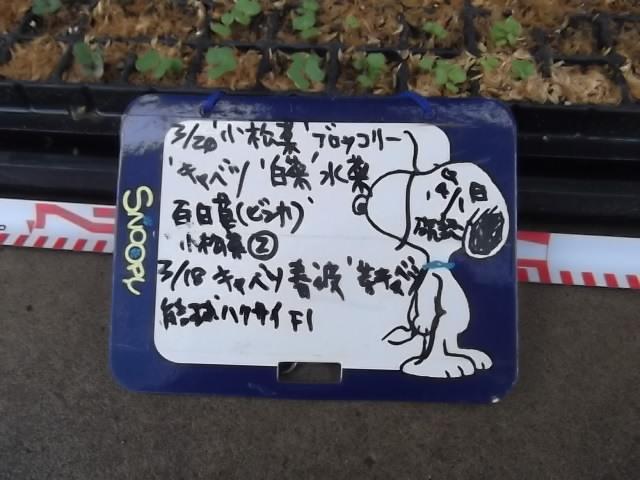 3/20 小松菜 ブロッコリー
キャベツ 白菜 水菜
百日草(ピンク)
小松菜②
3/18 キャベツ 春波 芽キャベツ
結球ハクサイF1
4/8
確認
SNOOPY